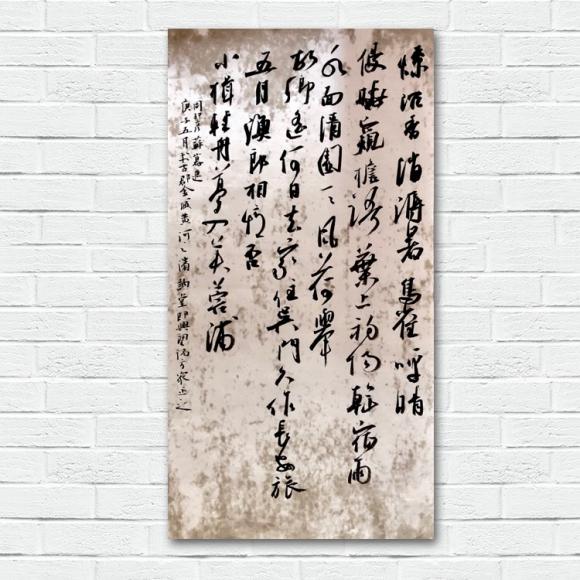 燎沉香消溽暑鳥雀呼晴
侵曉窺檐語葉上初陽乾宿雨
水面清圓一一風荷舉
故鄉遙何日去家住吳門久作長安旅
五月漁郎相憶否
小楫輕舟夢入芙蓉浦
周邦彥蘇幕遮
庚子五月於古郡金城黃河之濱堂即興方家正之